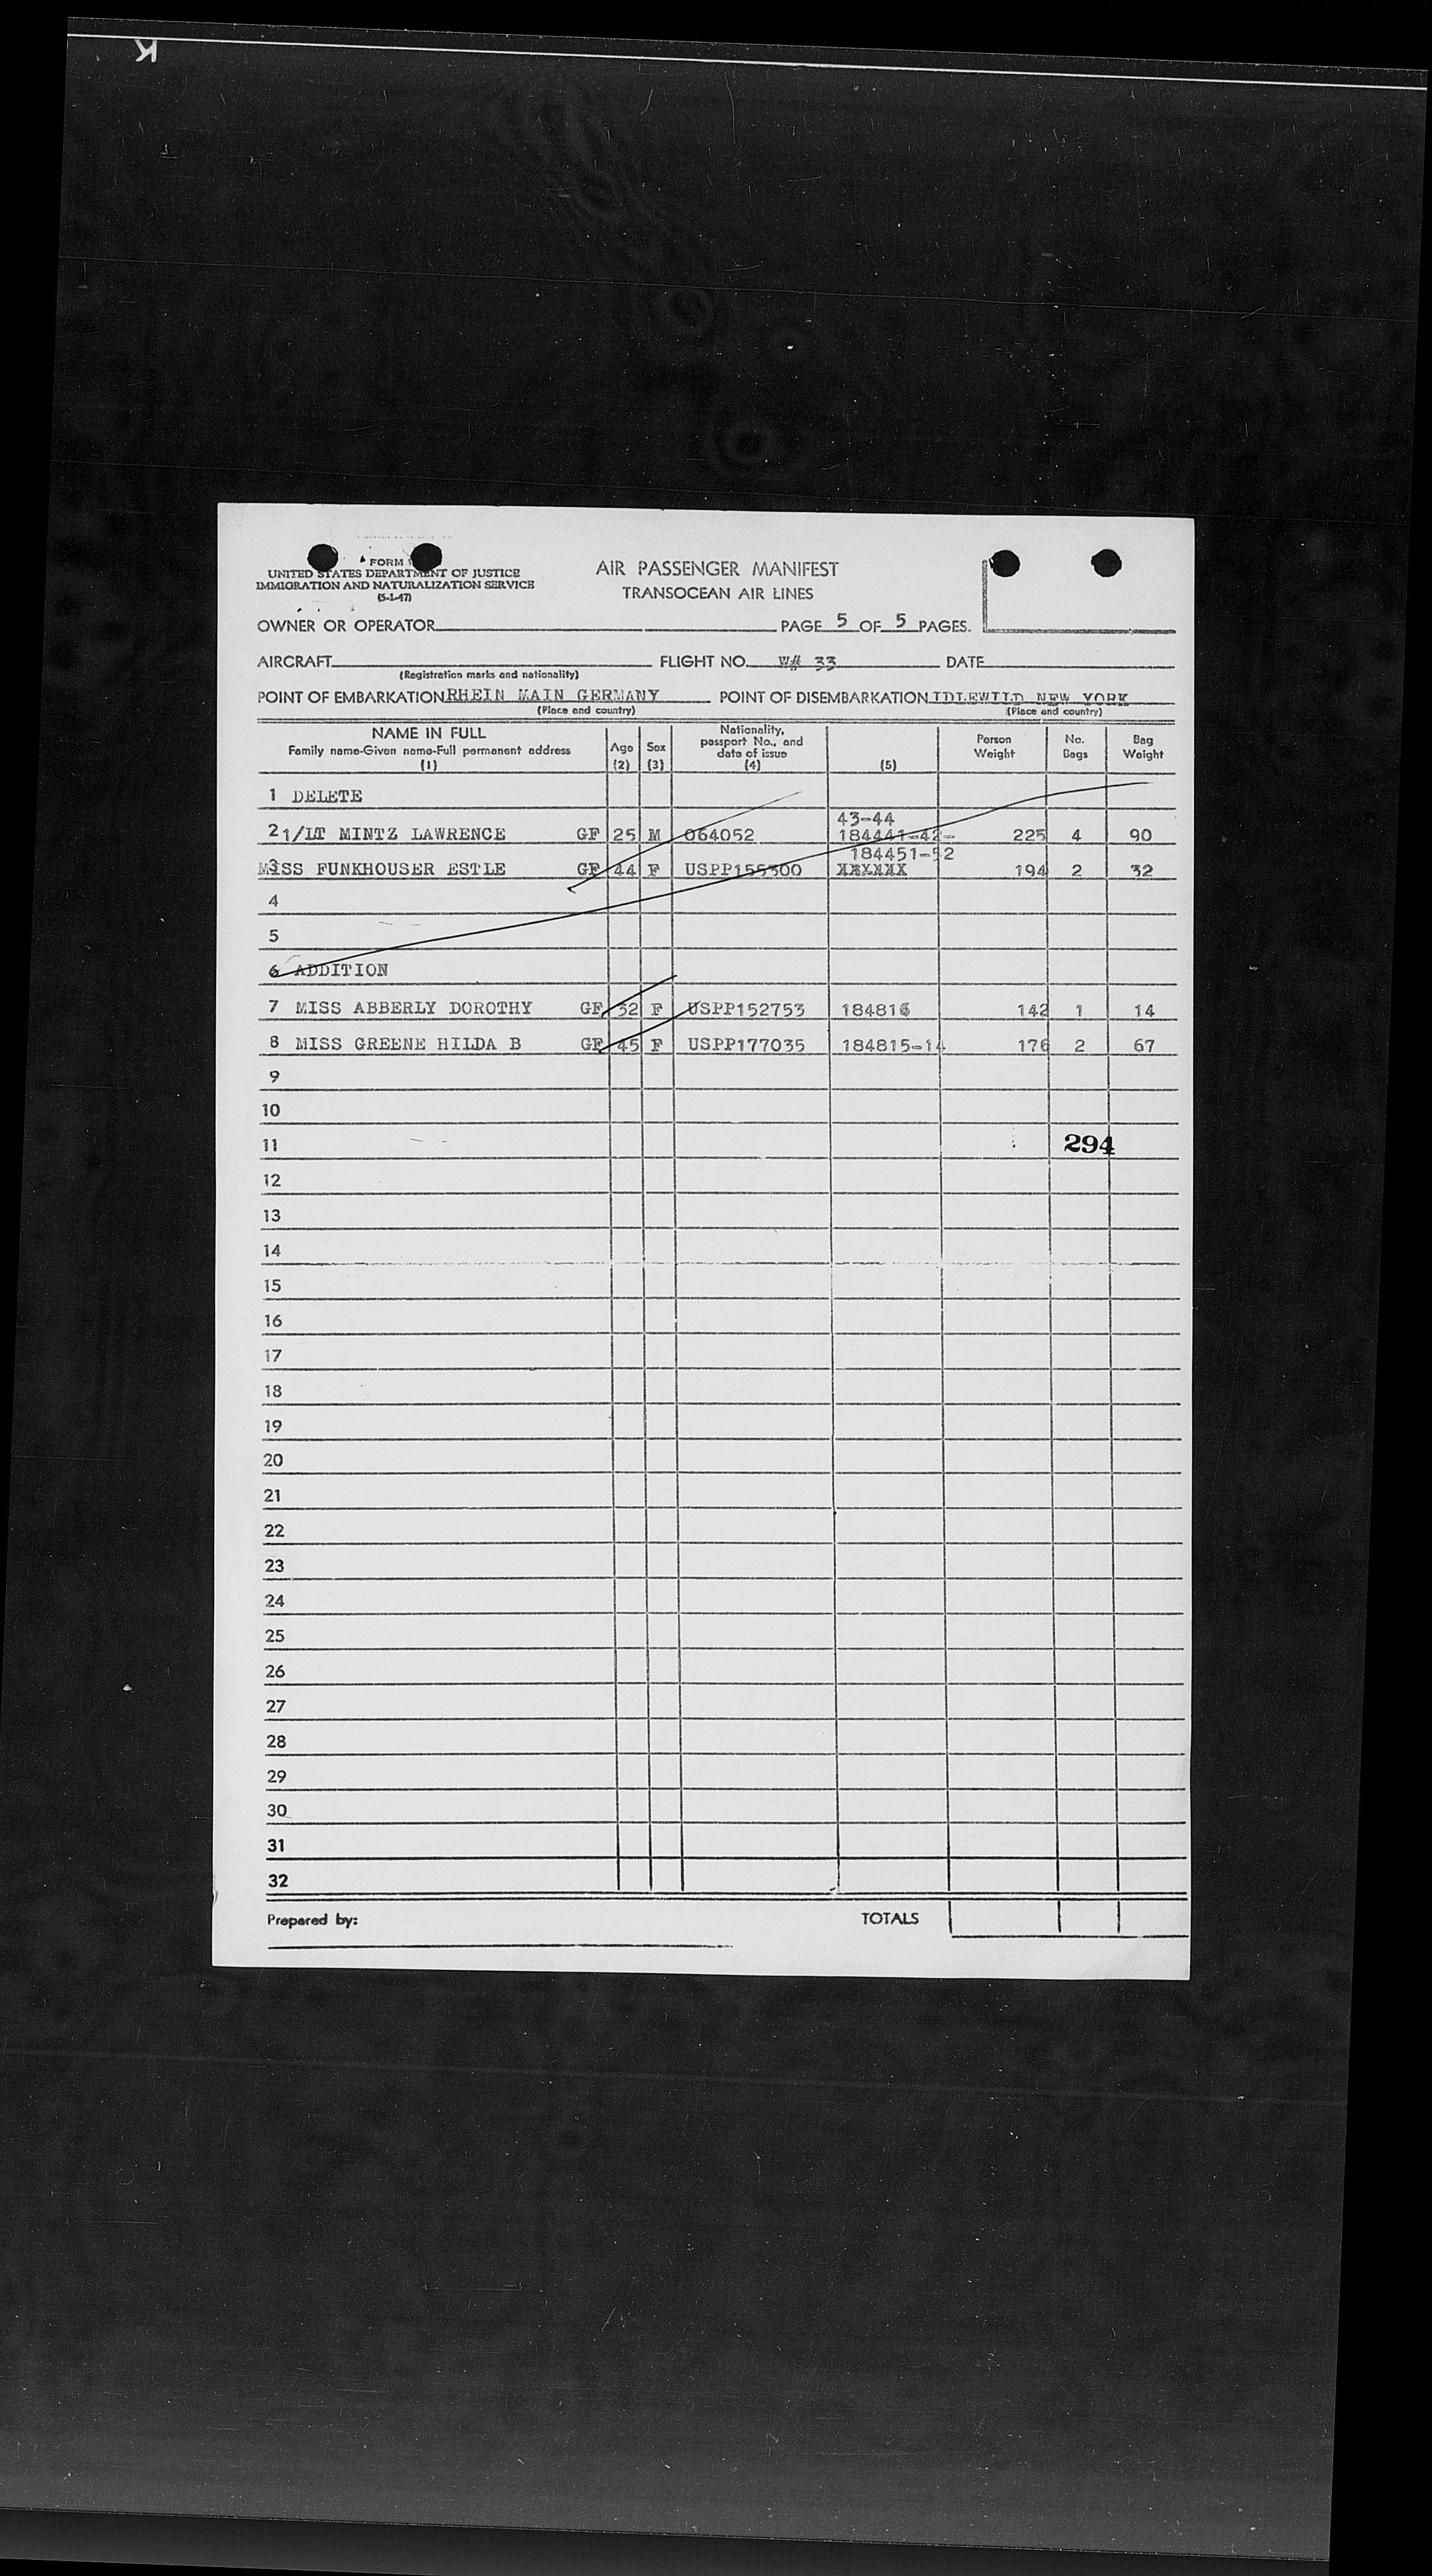 FORM
UNITED STATES DEPARTMENT OF JUSTICE
IMMIGRATION AND NATURALIZATION SERVICE
(5-1-47)
AIR PASSENGER MANIFEST
TRANSOCEAN AIR LINES
OWNER OR OPERATOR PAGE 5 OF 5 PAGES.
AIRCRAFT FLIGHT NO. W# 33 DATE
(Registration marks and nationality)
POINT OF EMBARKATION RHEIN MAIN GERMANY POINT OF DISEMBARKATION IDLEWILD NEW YORK
(Place and country) (Place and country)
NAME IN FULL
Family name-Given name-Full permanent address
(1)
Age
(2)
Sex
(3)
Nationality,
passport No., and
date of issue
(4)
(5)
Person
Weight
No.
Bags
Bag
Weight
1 DELETE
43-44
2 1/LT MINTZ LAWRENCE GF 25 M 064052 184441-42- 225 4 90
184451-52
3 MISS FUNKHOUSER ESTLE GF 44 F USPP155300 XXXXXX 194 2 32
4
5
6 ADDITION
7 MISS ABBERLY DOROTHY GF 32 F USPP152753 184816 142 1 14
8 MISS GREENE HILDA B GF 45 F USPP177035 184815-14 176 2 67
9
10
11 294
12
13
14
15
16
17
18
19
20
21
22
23
24
25
26
27
28
29
30
31
32
Prepared by: TOTALS